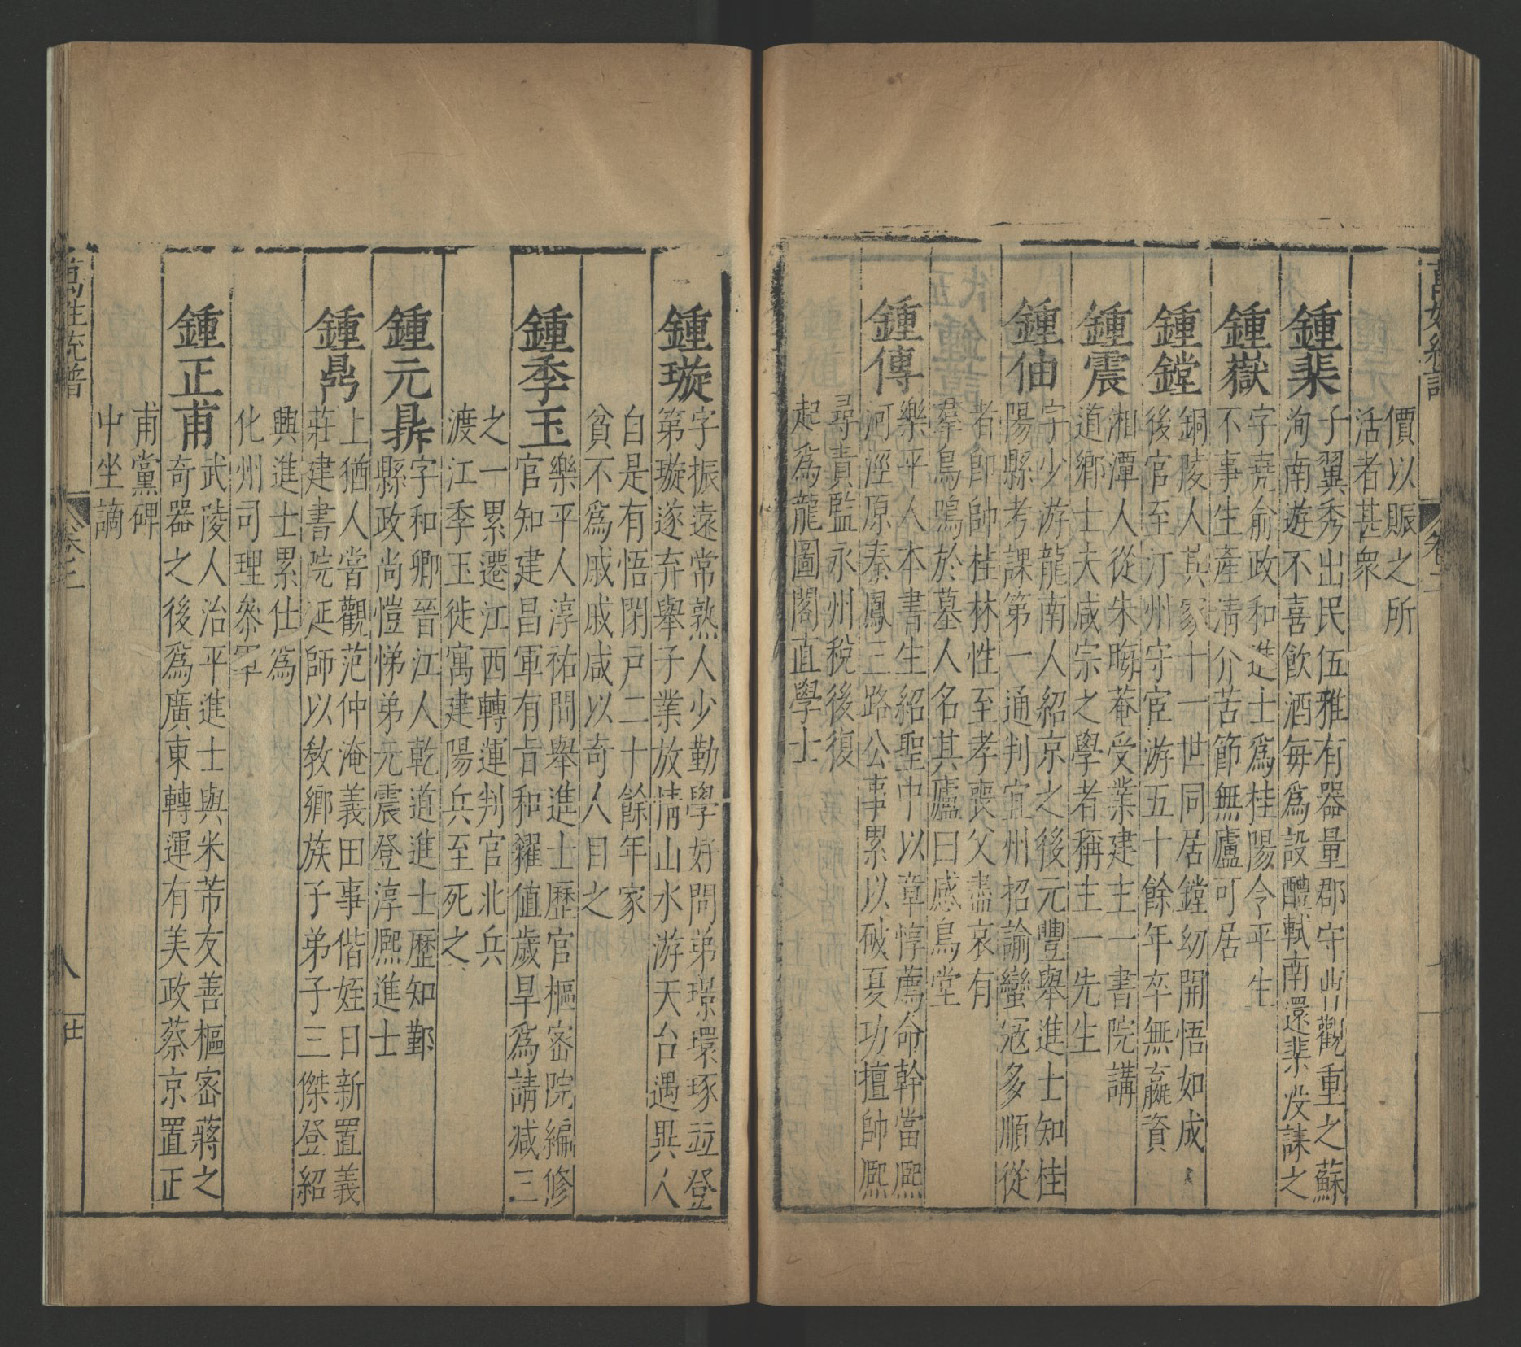 價以賑之所
活者甚衆
鍾棐
子翼秀出民伍雅有器量郡守
觀重之蘇
洵南遊不喜飲酒每爲設醴軾南還棐
謀之
鍾嶽
字堯俞政和進士爲桂陽令平生
不事生產清介苦節無廬可居
鍾鏜
銅陵人其家十一世同居鏜幼開悟如成
後官至汀州守宦游五十餘年卒無嬴資
鍾震
湘潭人從朱晦菴受業建主一書院講
道鄉士大咸宗之學者稱主一先生
鍾伷
字少游龍南人紹京之後元豐舉進士知桂
陽縣考課第一通判宜州招諭蠻冦多順從
者郎帥桂林性至孝喪父盡哀有
羣鳥鳴於墓人名其廬曰感鳥堂
鍾傳
樂平人本書生紹聖中以章惇薦命幹當熈
河涇原秦鳳三路公事累以破夏功擅帥熈
尋責監永州稅後復
起爲龍圖閣直學士
鍾璇
字振遠常熟人少勤學好問弟璟環琢竝登
第璇遂弃舉子業放情山水游天台遇異人
自是有悟閉戸二十餘年家
貧不爲戚戚咸以奇人目之
鍾季玉
樂平人淳祐間舉進士歷官樞密院編修
官知建昌軍有旨和糴值歲旱爲請减三
之一累遷江西轉運判官北兵
渡江季玉徙寓建陽兵至死之
鍾元鼎
字和卿晉江人乾道進士歷知鄞
縣政尚愷悌弟元震登淳熈進士
鍾鼎
上猶人嘗觀范仲淹義田事偕姪日新置義
莊建書院延師以敎鄉族子弟子三傑登紹
興進士累仕爲
化州司理叅軍
鍾正甫
武陵人治平進士與米芾友善樞密蔣之
奇器之後爲廣東轉運有美政蔡京置正
甫黨碑
中坐謫
萬姓統譜
卷之二
八